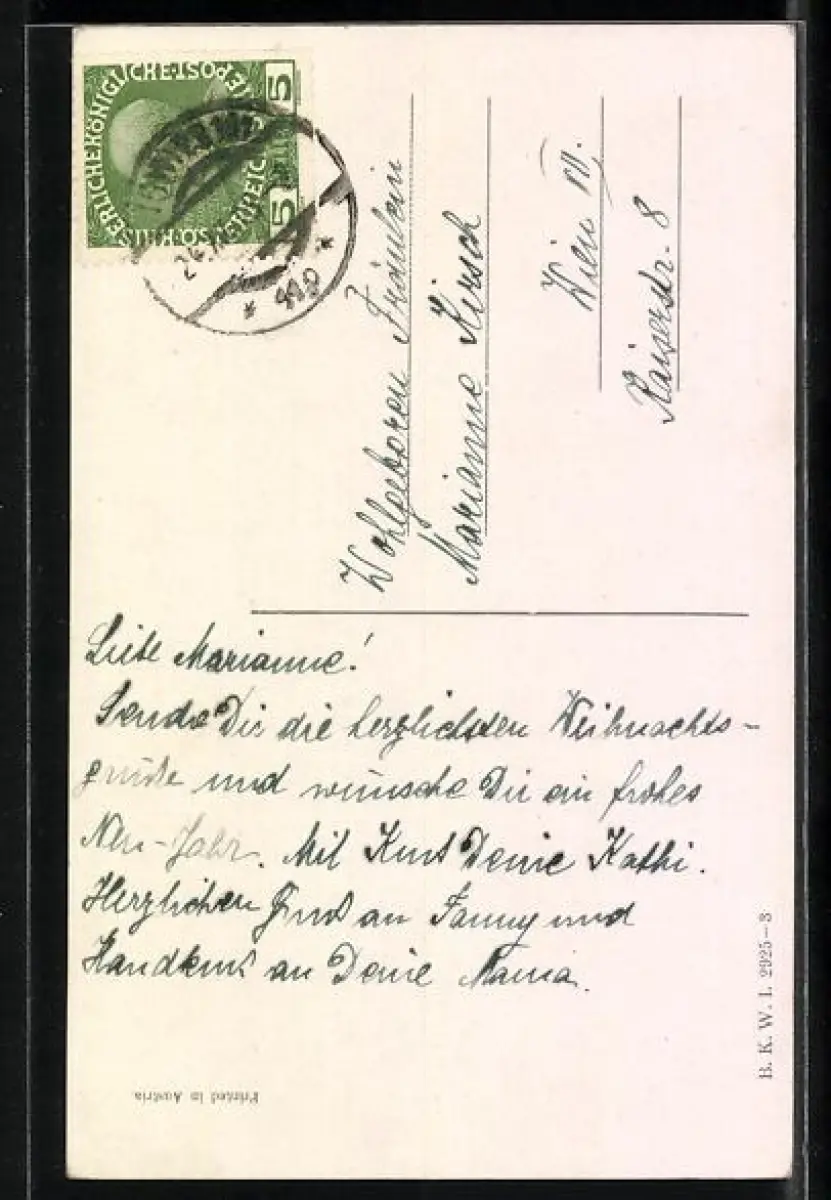 KAISERLICHE KÖNIGLICHE ÖSTERREICHISCHE POST
5
5
Wohlgeboren Fräulein
Marianne Kirsch
Wien VII.
Kaiserstr. 8
Liebe Marianne!
Sende Dir die herzlichsten Weihnachts-
grüße und wünsche Dir ein frohes
Neu-Jahr. Mit Kuss Deine Kathi.
Herzlichen Gruß an Fanny und
Handkuss an Deine Mama.
B. K. W. I. 2925-3
Printed in Austria